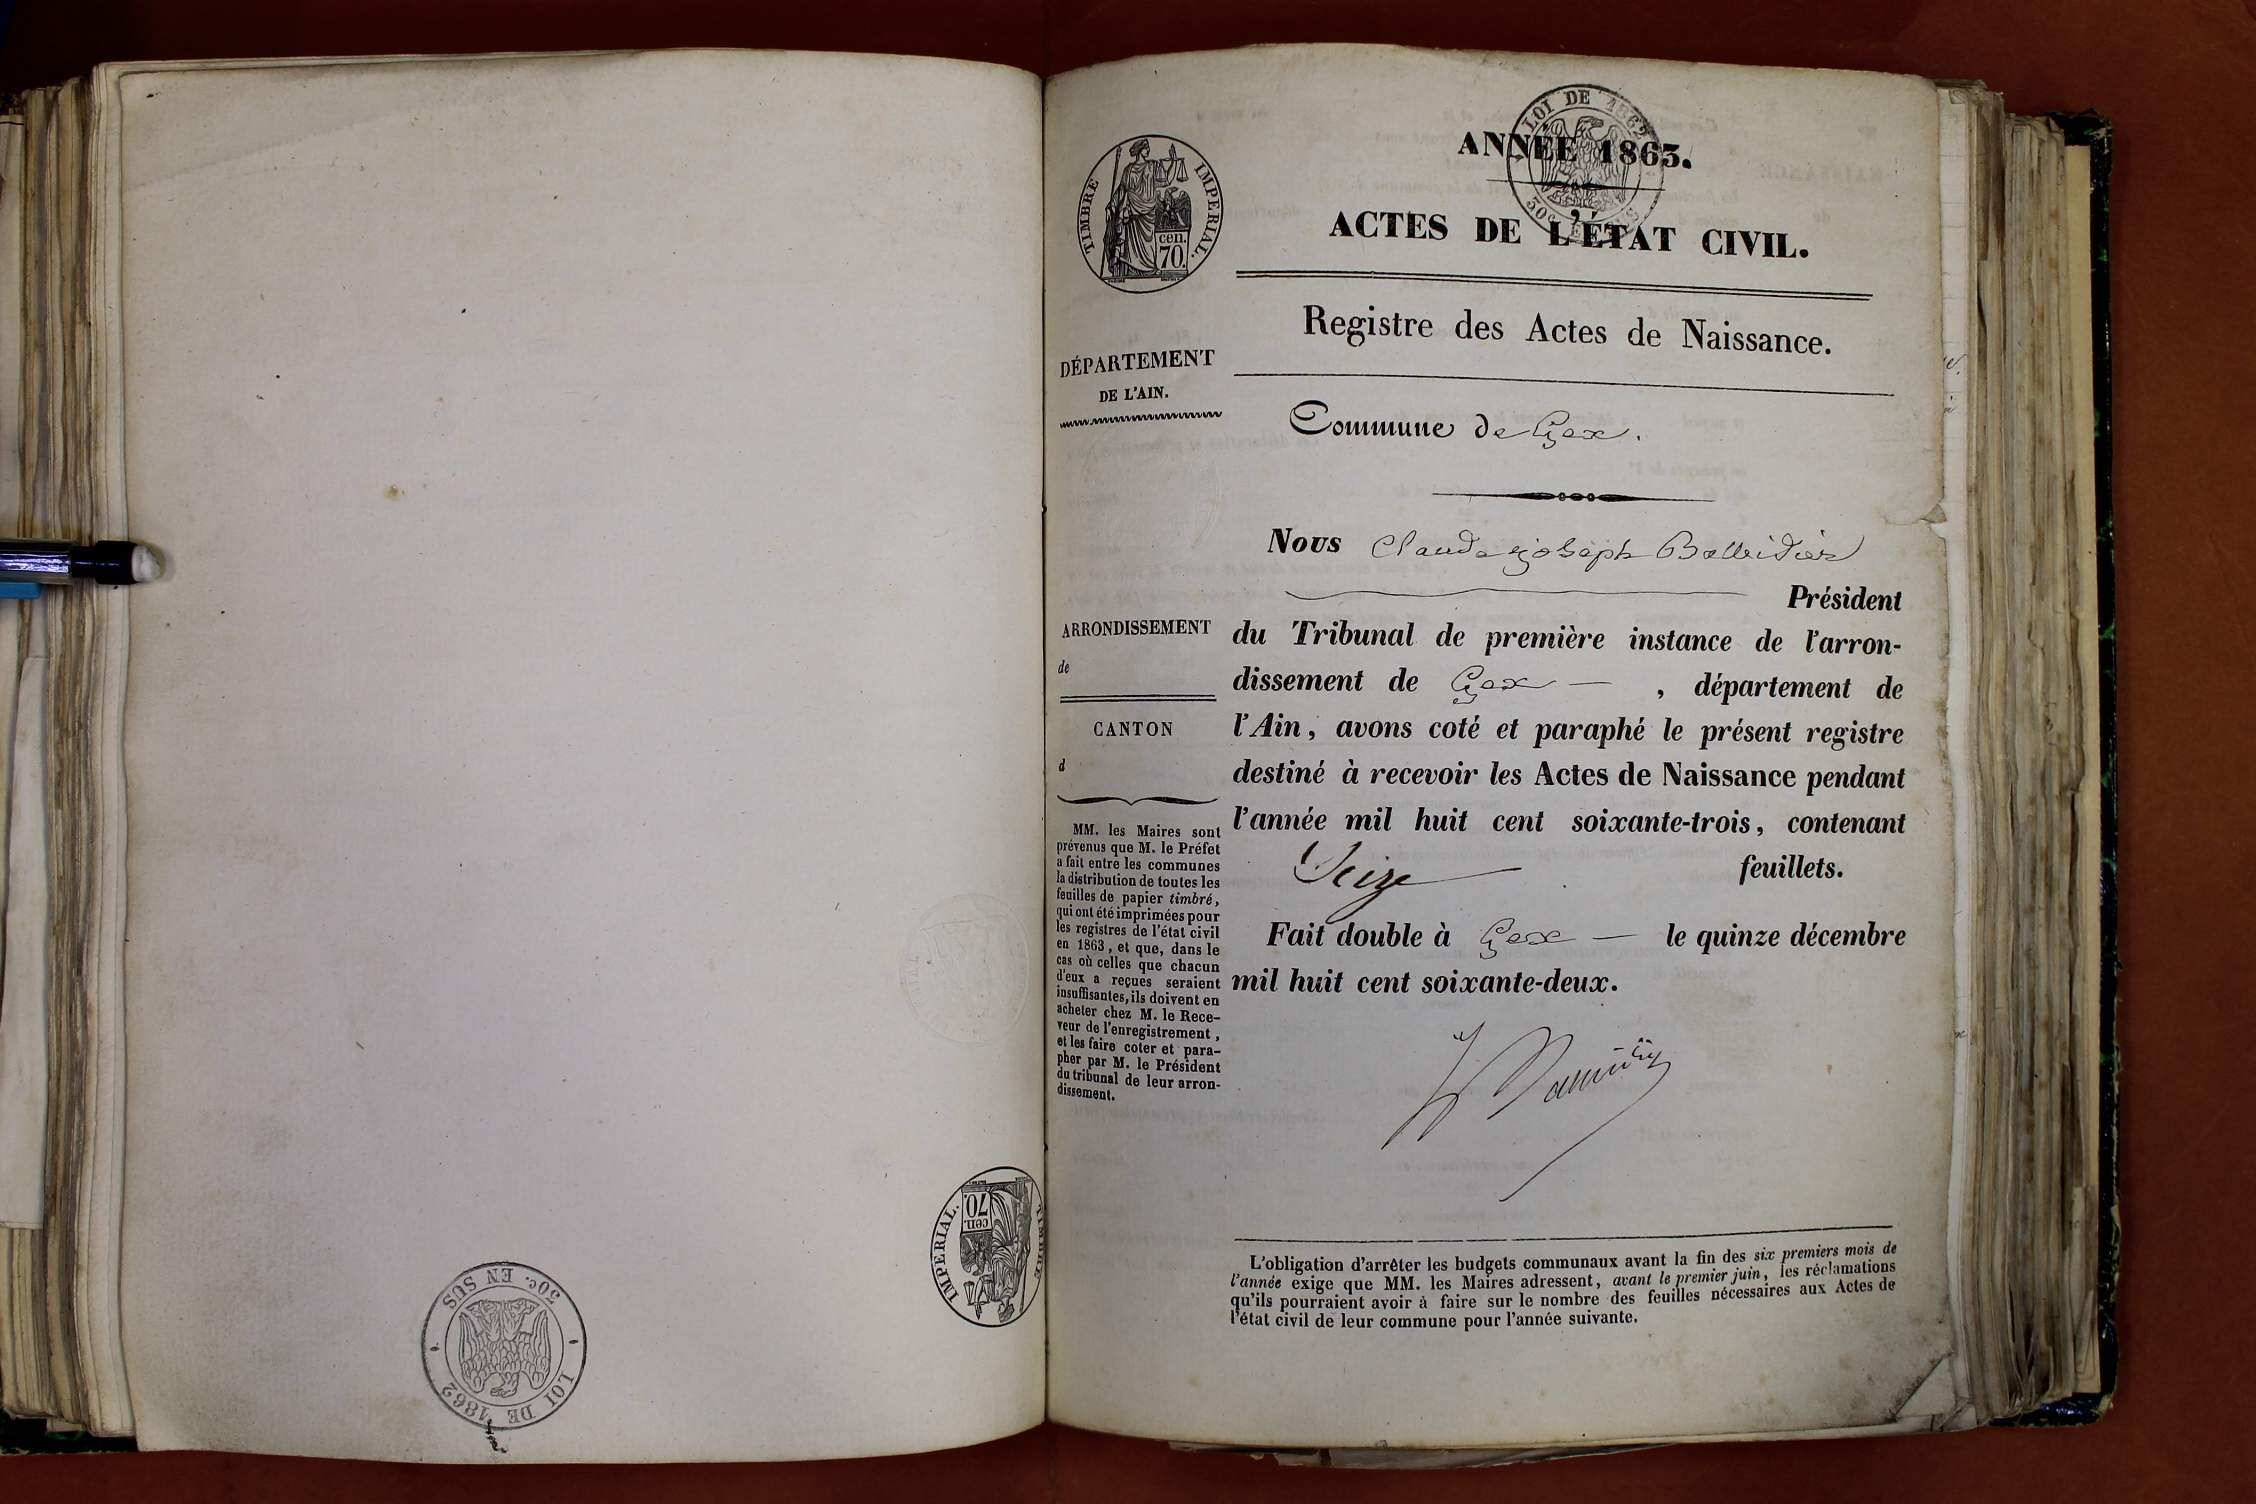 LOI DE 1862
50c. EN SUS
TIMBRE IMPERIAL.
cen.
70.
TIMBRE IMPERIAL.
cen.
70.
LOI DE 1862
50c. EN SUS
ANNÉE 1863.
ACTES DE L'ÉTAT CIVIL.
Registre des Actes de Naissance.
DÉPARTEMENT
DE L'AIN.
Commune de Gex.
ARRONDISSEMENT
de
CANTON
d
MM. les Maires sont
prévenus que M. le Préfet
a fait entre les communes
la distribution de toutes les
feuilles de papier timbré,
qui ont été imprimées pour
les registres de l'état civil
en 1863, et que, dans le
cas où celles que chacun
d'eux a reçues seraient
insuffisantes, ils doivent en
acheter chez M. le Rece-
veur de l'enregistrement,
et les faire coter et para-
pher par M. le Président
du tribunal de leur arron-
dissement.
Nous Claude Joseph
Président
du Tribunal de première instance de l'arron-
dissement de Gex — , département de
l'Ain, avons coté et paraphé le présent registre
destiné à recevoir les Actes de Naissance pendant
l'année mil huit cent soixante-trois, contenant
Seize feuillets.
Fait double à Gex — le quinze décembre
mil huit cent soixante-deux.
L'obligation d'arrêter les budgets communaux avant la fin des six premiers mois de
l'année exige que MM. les Maires adressent, avant le premier juin, les réclamations
qu'ils pourraient avoir à faire sur le nombre des feuilles nécessaires aux Actes de
l'état civil de leur commune pour l'année suivante.